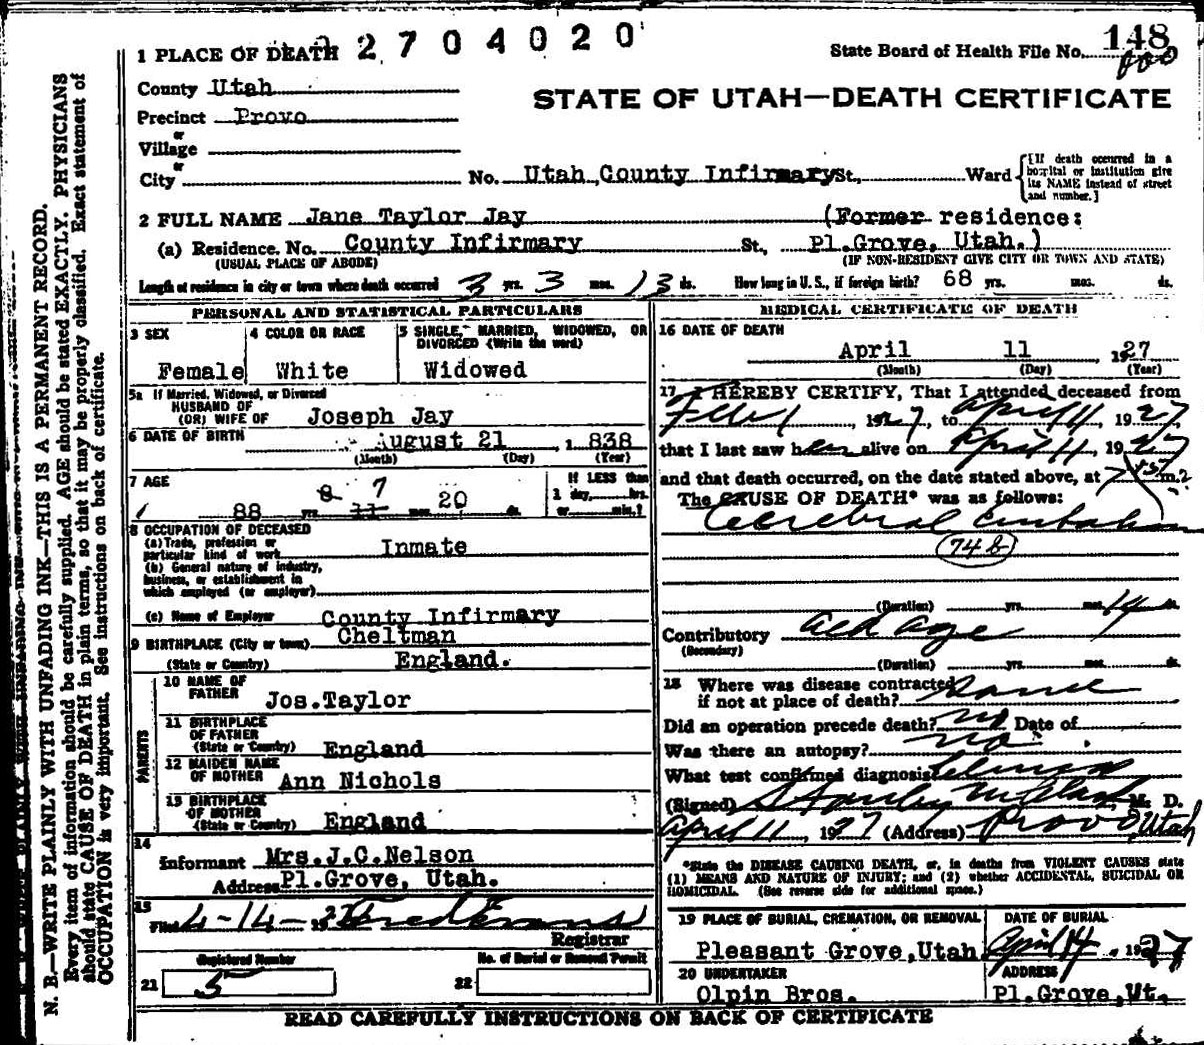 1 PLACE OF DEATH 2704020
State Board of Health File No. 148
County Utah
STATE OF UTAH—DEATH CERTIFICATE
Precinct Provo
or
Village
or
City No. Utah County Infirmary St., Ward
[If death occurred in a
hospital or institution give
its NAME instead of street
and number.]
2 FULL NAME Jane Taylor Jay (Former residence:
(a) Residence. No. County Infirmary St., Pl.Grove, Utah.)
(USUAL PLACE OF ABODE) (IF NON-RESIDENT GIVE CITY OR TOWN AND STATE)
Length of residence in city or town where death occurred 3 yrs. 3 mos. 13 ds. How long in U. S., if foreign birth? 68 yrs. mos. ds.
PERSONAL AND STATISTICAL PARTICULARS
3 SEX
Female
4 COLOR OR RACE
White
5 SINGLE, MARRIED, WIDOWED, OR
DIVORCED (Write the word)
Widowed
5a If Married, Widowed, or Divorced
HUSBAND OF
(OR) WIFE OF Joseph Jay
6 DATE OF BIRTH August 21, 1838
(Month) (Day) (Year)
7 AGE
If LESS than
1 day, hrs.
or min.?
8 7
88 yrs. 11 mos. 20 ds.
8 OCCUPATION OF DECEASED
(a) Trade, profession or
particular kind of work Inmate
(b) General nature of industry,
business, or establishment in
which employed (or employer)
(c) Name of Employer County Infirmary
9 BIRTHPLACE (City or town) Cheltman
(State or Country) England.
PARENTS
10 NAME OF
FATHER Jos.Taylor
11 BIRTHPLACE
OF FATHER
(State or Country) England
12 MAIDEN NAME
OF MOTHER Ann Nichols
13 BIRTHPLACE
OF MOTHER
(State or Country) England
14
Informant Mrs.J.C.Nelson
Address Pl.Grove, Utah.
15
Filed 4-14-1927 Fred Evans
Registrar
Registered Number
21 5
No. of Burial or Removal Permit
22
MEDICAL CERTIFICATE OF DEATH
16 DATE OF DEATH
April 11, 1927
(Month) (Day) (Year)
17 I HEREBY CERTIFY, That I attended deceased from
Feb 1, 1927, to April 11 1927,
that I last saw her alive on April 11, 1927
and that death occurred, on the date stated above, at 7 m.
The CAUSE OF DEATH* was as follows:
Cerebral
74b
(Duration) yrs. mos. 14 ds.
Contributory old age
(Secondary)
(Duration) yrs. mos. ds.
18 Where was disease contracted
if not at place of death? Same
Did an operation precede death? no Date of
Was there an autopsy? no
What test confirmed diagnosis
(Signed) Stanley M. D.
April 11, 1927 (Address) Provo, Utah
*State the DISEASE CAUSING DEATH, or, in deaths from VIOLENT CAUSES state
(1) MEANS AND NATURE OF INJURY; and (2) whether ACCIDENTAL, SUICIDAL OR
HOMICIDAL. (See reverse side for additional space.)
19 PLACE OF BURIAL, CREMATION, OR REMOVAL
Pleasant Grove,Utah
DATE OF BURIAL
April 14, 1927
20 UNDERTAKER
Olpin Bros.
ADDRESS
Pl.Grove,Ut.
READ CAREFULLY INSTRUCTIONS ON BACK OF CERTIFICATE
N. B.—WRITE PLAINLY WITH UNFADING INK—THIS IS A PERMANENT RECORD.
Every item of information should be carefully supplied. AGE should be stated EXACTLY. PHYSICIANS
should state CAUSE OF DEATH in plain terms, so that it may be properly classified. Exact statement of
OCCUPATION is very important. See instructions on back of certificate.